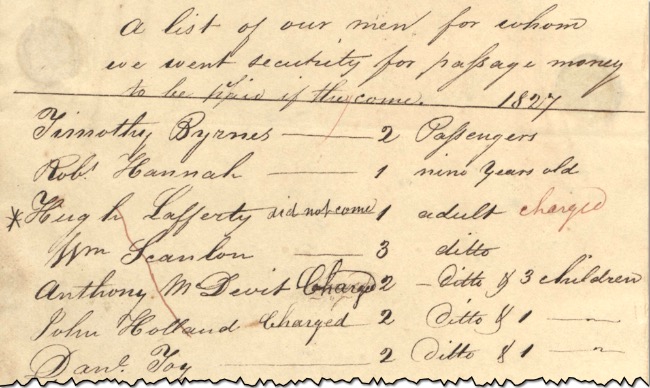 a list of our men for whom
we went security for passage money
to be paid if they come. 1827
Timothy Byrnes — 2 Passengers
Robt Hannah — 1 nine years old
*Hugh Lafferty did not come 1 adult charged
Wm Scanlon — 3 ditto
Anthony McDevit Charged 2 - Ditto & 3 children
John Holland Charged 2 Ditto & 1 — "
Danl Foy — 2 Ditto & 1 — "